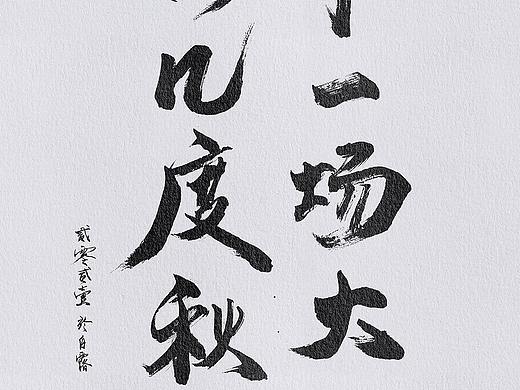 一场大
几度秋
貳零貳壹 於白露